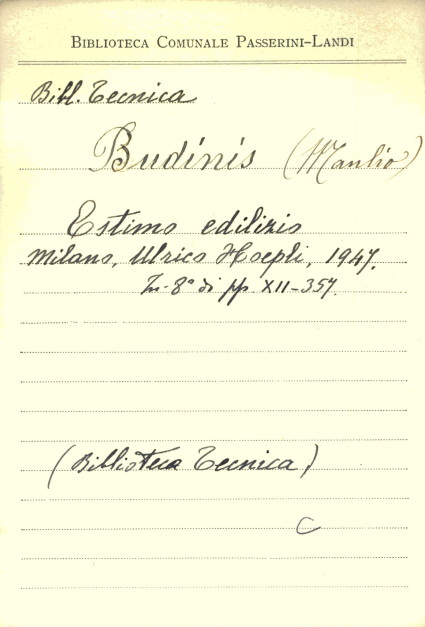 BIBLIOTECA COMUNALE PASSERINI-LANDI
Bibl. Tecnica
Budinis (Manlio)
Estimo edilizio
Milano, Ulrico Hoepli, 1947.
In-8° di pp. XII-357.
(Biblioteca Tecnica)
C